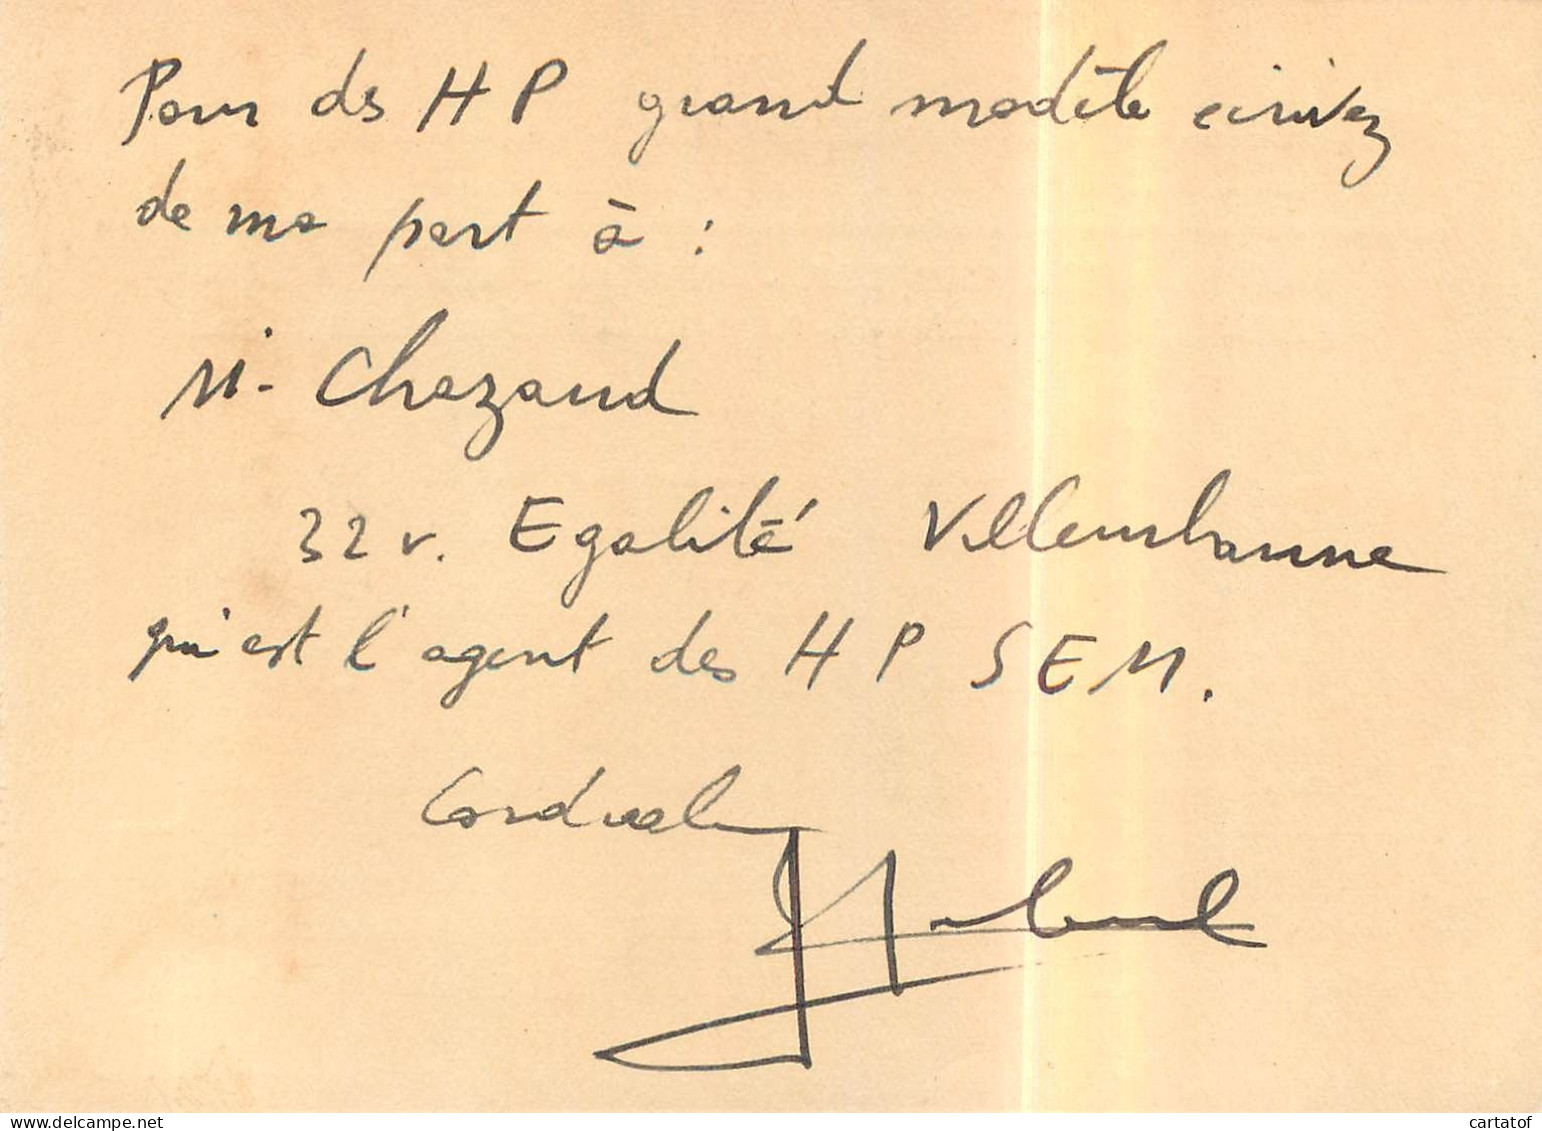 Pour des HP grand modèle écrivez
de ma part à :
M. Chazaud
32 r. Egalité Villeurbanne
qui est l'agent des HP SEM.
Cordialem
delcampe.net
cartatof